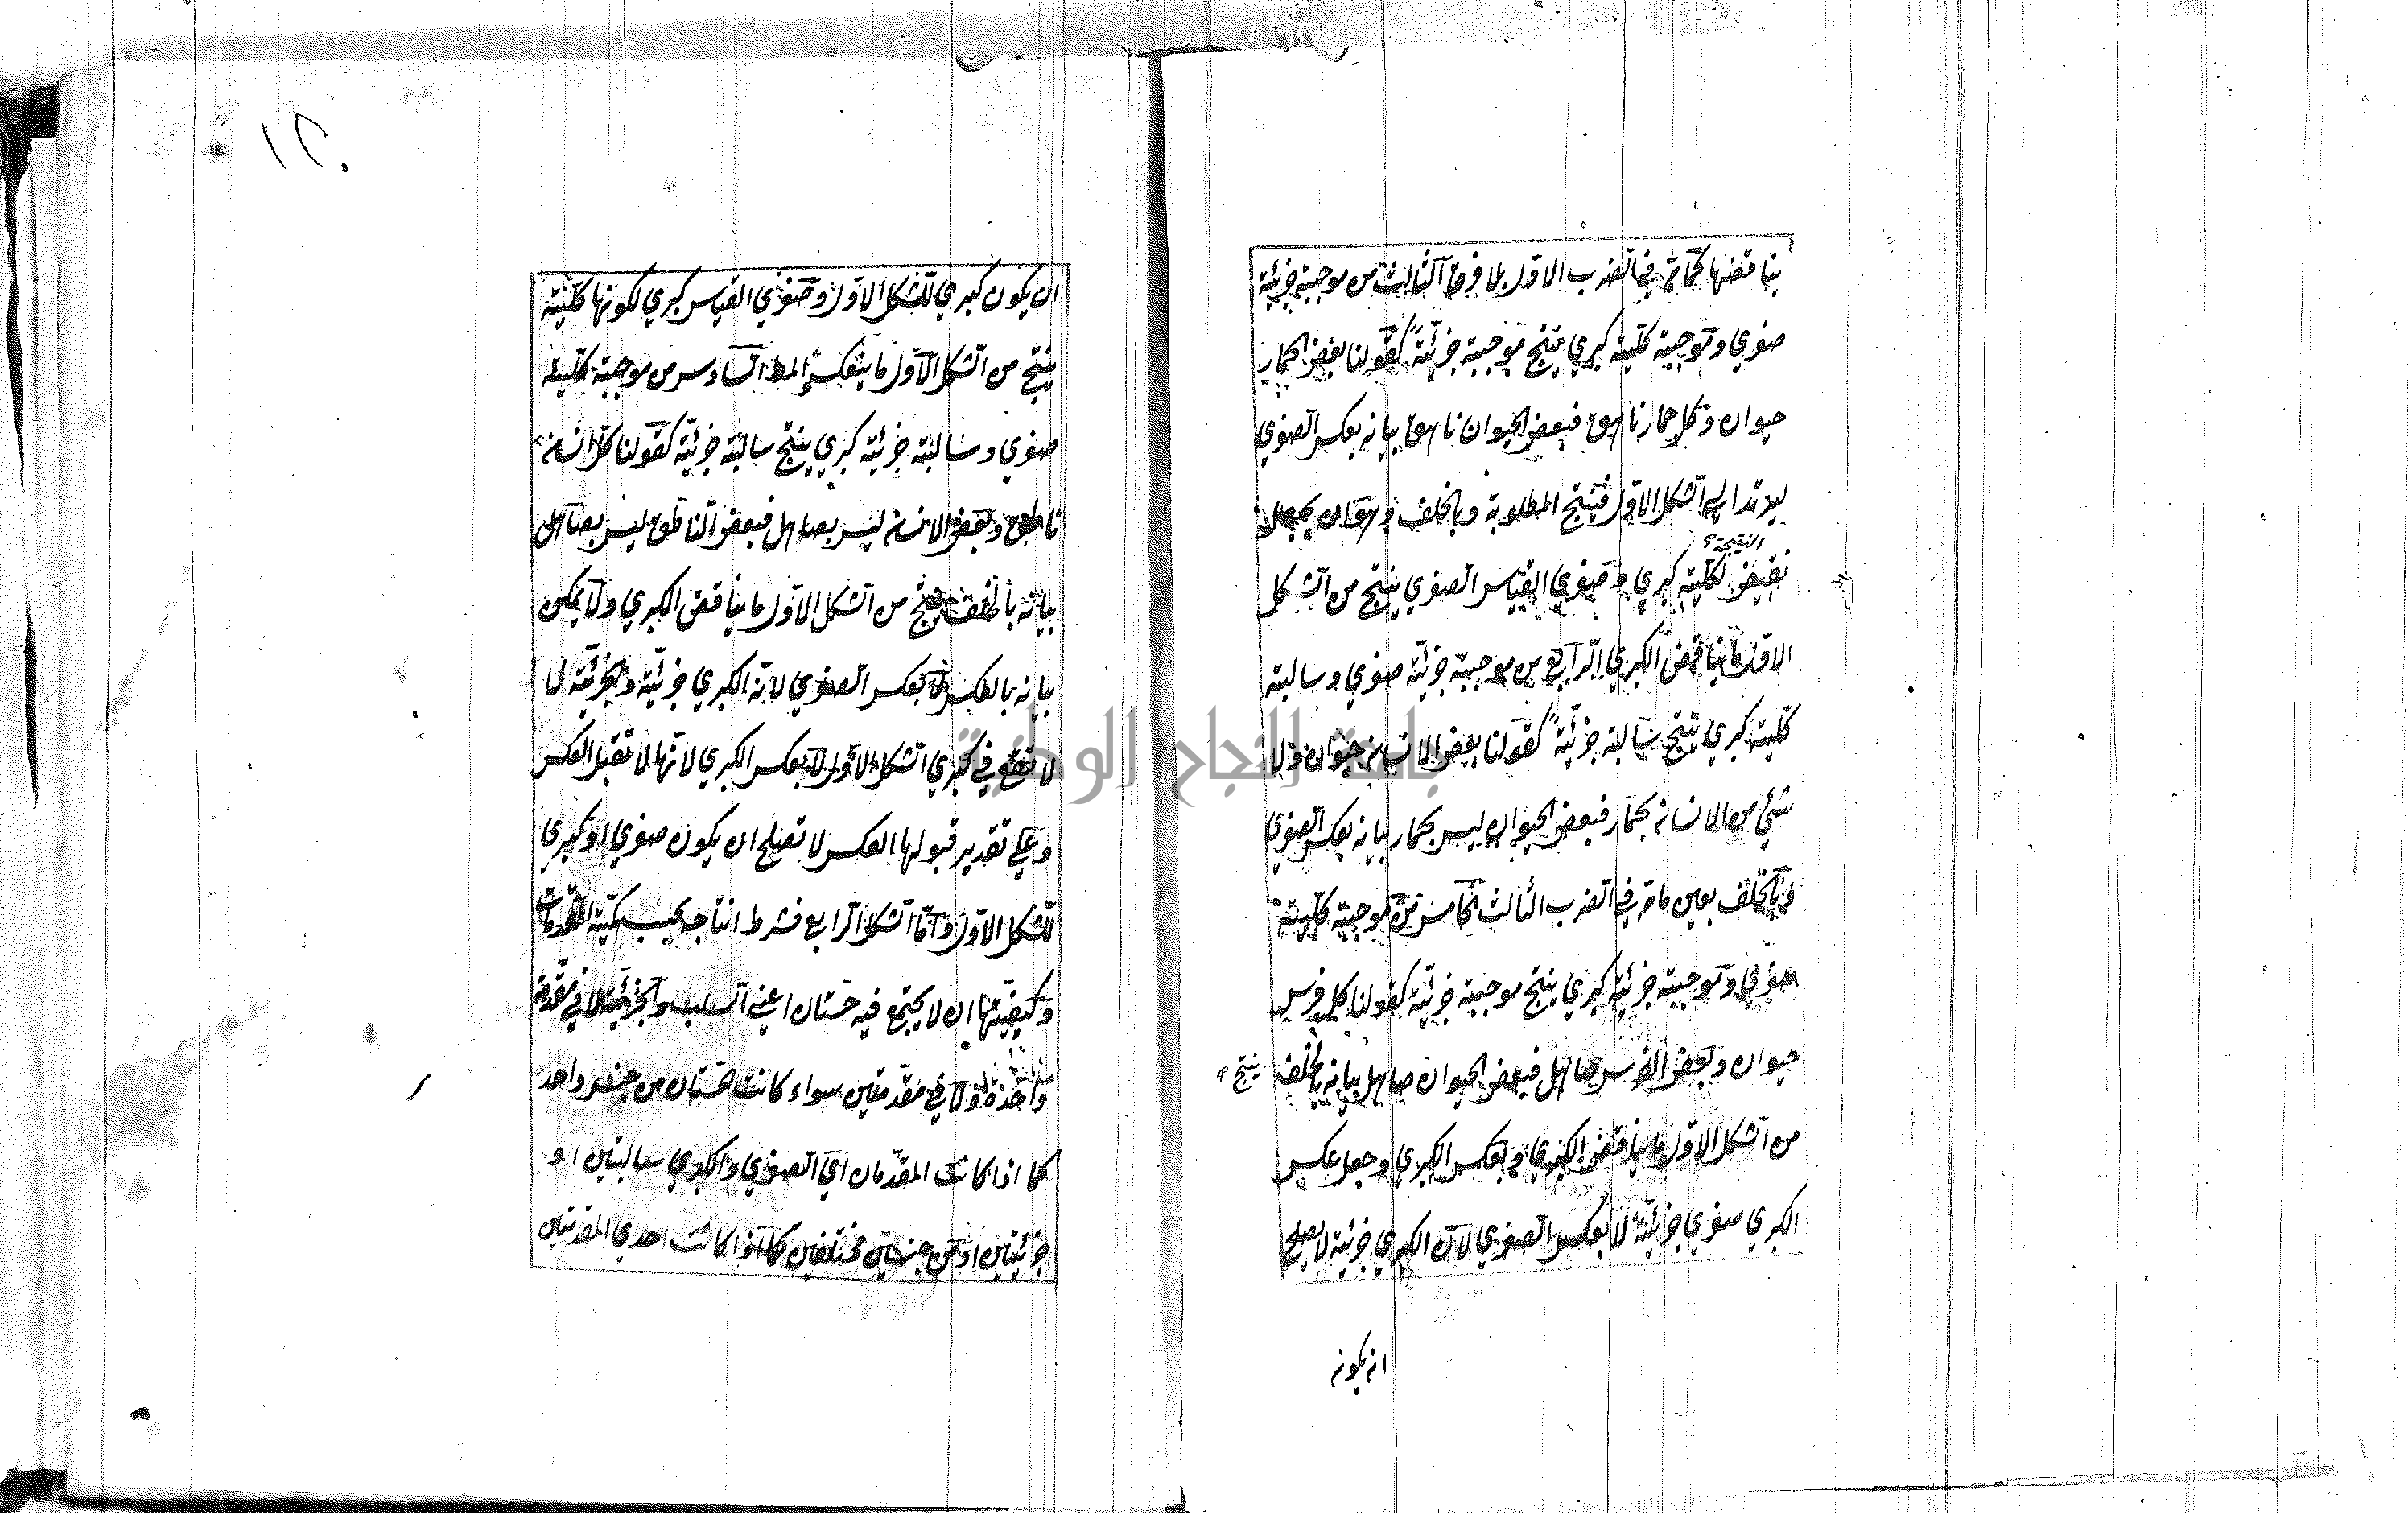 يناقضها كما مر في الضرب الاول بلا فرق الثالث من موجبة جزئية
صغري وموجبة كلية كبري ينتج موجبة جزئية كقولنا بعض الحمار
حيوان وكل حمار ناهق فبعض الحيوان ناهق بيانه بعكس الصغري
ليرتد الي الشكل الاول فينتج المطلوبة وبالخلف وهو ان يجعل
النتيجة
نقيض لكلية كبري وصغري القياس الصغري ينتج من الشكل
الاول ما يناقض الكبري الرابع من موجبة جزئية صغري وسالبة
كلية كبري ينتج سالبة جزئية كقولنا بعض الانسان حيوان ولا
شئ من الانسان بحمار فبعض الحيوان ليس بحمار بيانه بعكس الصغري
وبالخلف بعين ما مر في الضرب الثالث الخامس من موجبة كلية
صغري وموجبة جزئية كبري ينتج موجبة جزئية كقولنا كل فرس
حيوان وبعض الفرس صاهل فبعض الحيوان صاهل بيانه بالخلف ينتج
من الشكل الاول ما يناقض الكبري وبعكس الكبري وجعل عكس
الكبري صغري جزئية لا بعكس الصغري لان الكبري جزئية لا يصلح
ان يكون
ان يكون كبري للشكل الاول وصغري القياس كبري لكونها كلية
ينتج من الشكل الاول ما ينعكس المط السادس من موجبة كلية
صغري وسالبة جزئية كبري ينتج سالبة جزئية كقولنا كل انسان
ناطق وبعض الانسان ليس بصاهل فبعض الناطق ليس بصاهل
بيانه بالخلف ينتج من الشكل الاول ما يناقض الكبري ولا يمكن
بيانه بالعكس لا بعكس الصغري لان الكبري جزئية والجزئية لما
لا تقع في كبري الشكل الاول ولا بعكس الكبري لانها لا تقبل العكس
وعلي تقدير قبولها العكس لا تصلح ان يكون صغري او كبري
للشكل الاول واما الشكل الرابع فشرط انتاجه بحسب كمية المقدمات
وكيفيتها ان لا يجتمع فيه خستان اعني السلب والجزئية لا في مقدمة
واحدة ولا في مقدمتين سواء كانت الخستان من جنس واحد
كما اذا كانت المقدمتان اي الصغري والكبري سالبتين او
جزئيتين او من جنسين مختلفين كما اذا كانت احدي المقدمتين
جامعة النجاح الوطنية